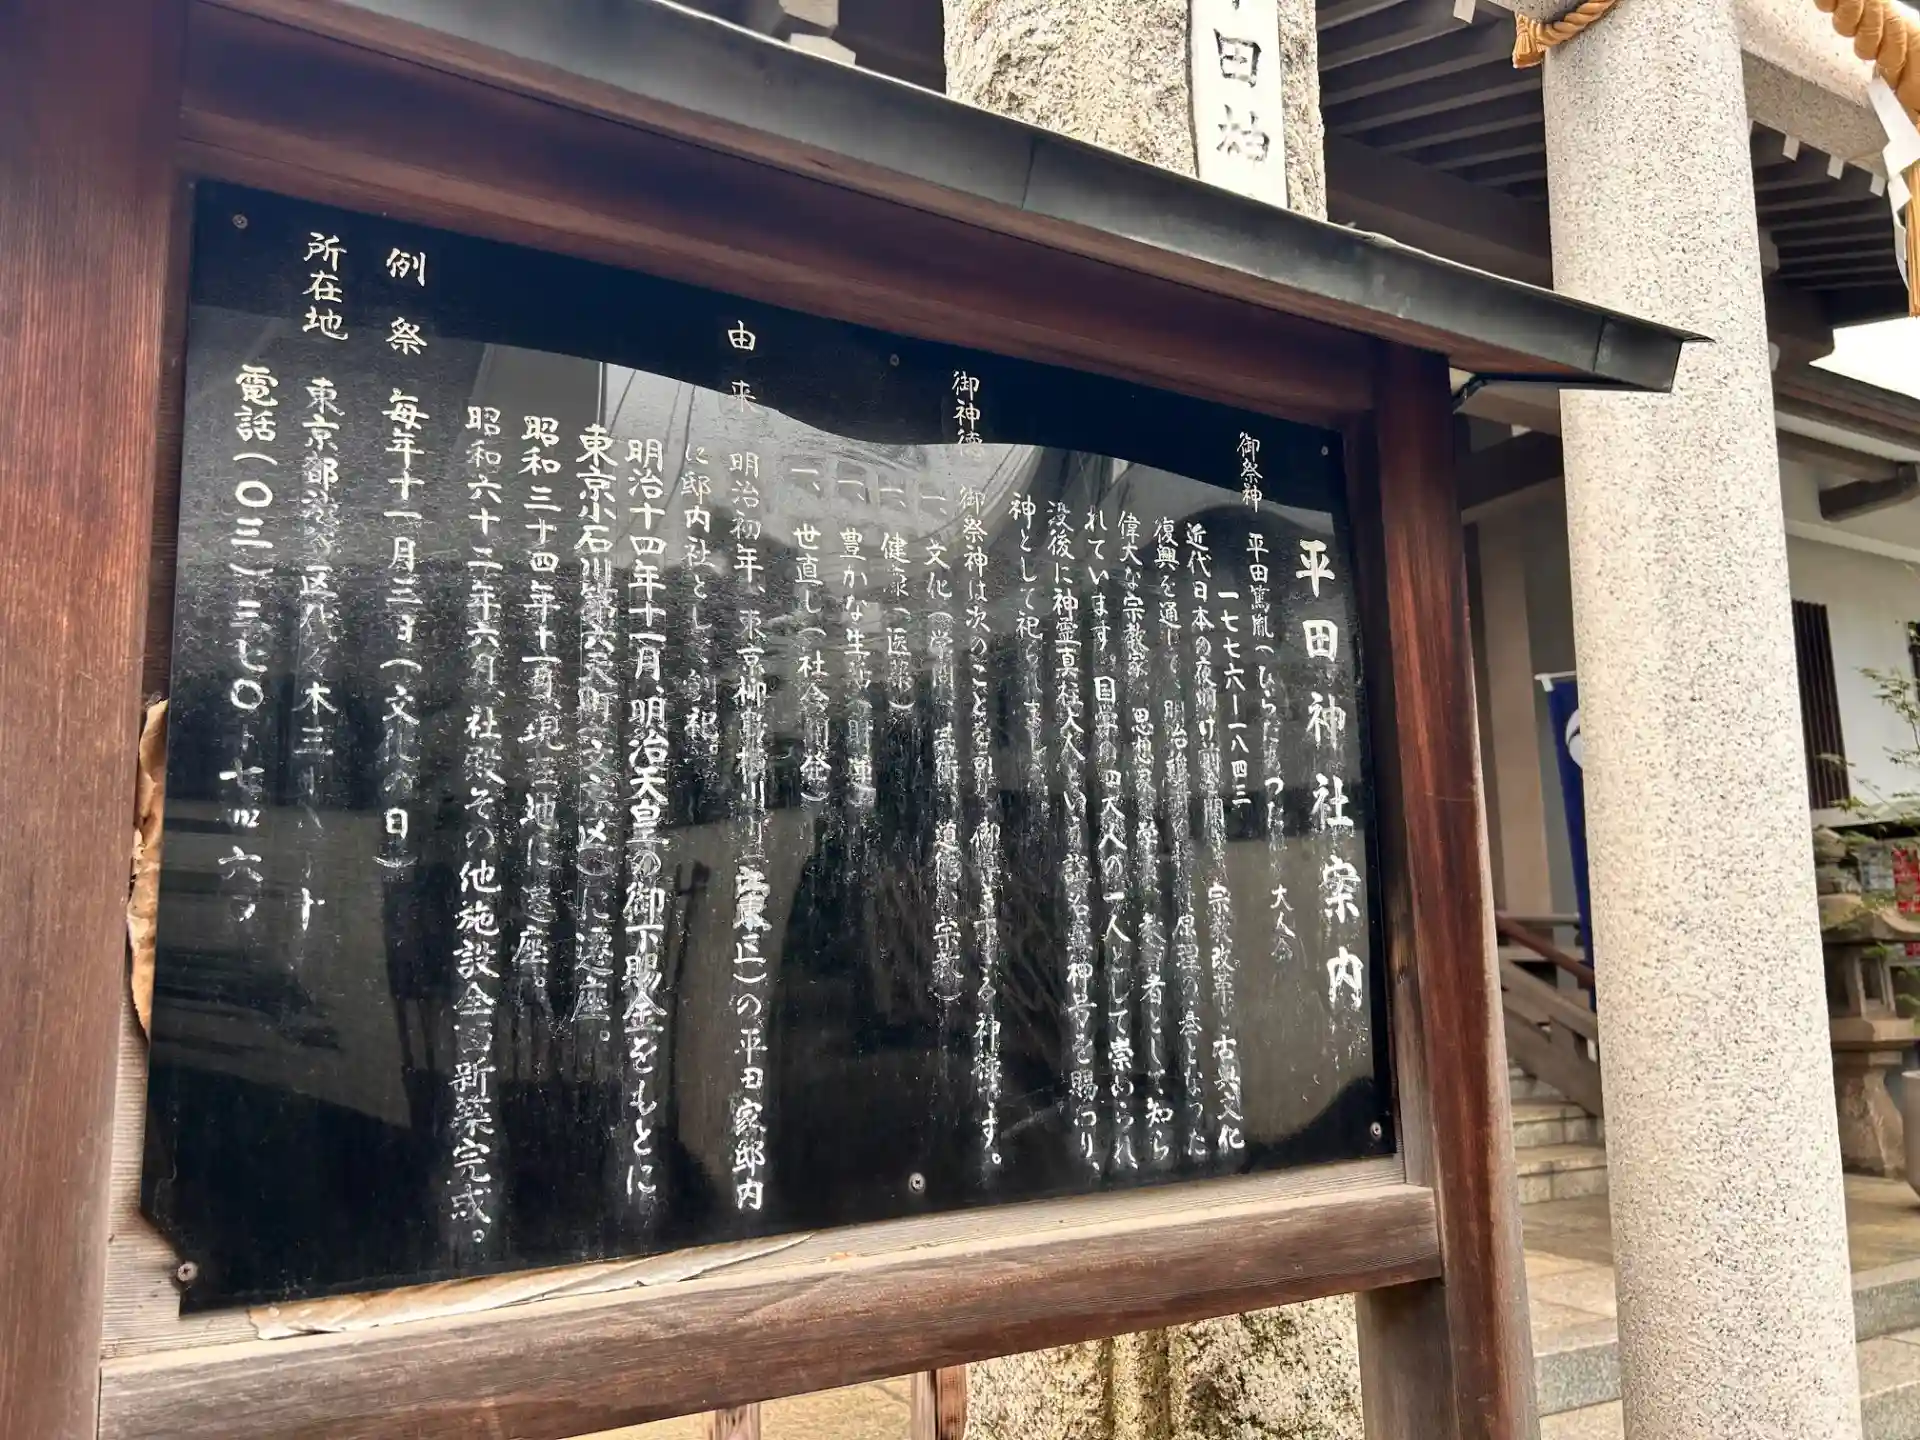 平田神社案内
御祭神 平田篤胤(ひらた あつたね 大人命
一七七六ー一八四三
近代日本の夜明け前 宗教改革と古典文化
復興を通して、明治維新 原理の基となった
偉大な宗教家、思想家、学者、 者として知ら
れています。国学の四大人の一人として崇められ、
没後に神霊真柱大人という 神号を賜わり、
神として祀られ
御神徳 御祭神は次のことを 御 下さる神様です。
一、文化(学問、芸術、道徳、宗教)
一、健康(医薬)
一、豊かな生活
一、世直し(社会開発)
由来 明治初年、東京柳 川 台東区)の平田家邸内
に邸内社とし、創祀。
明治十四年十一月、明治天皇の御下賜金をもとに
東京小石川第六天町(文京区)に遷座。
昭和三十四年十一月、現在地に遷座。
昭和六十二年六月、社殿その他施設全 新築完成。
例祭 毎年十一月三日(文化の日)
所在地 東京都渋谷区代々木三
電話(〇三)三七〇 七四六
田神